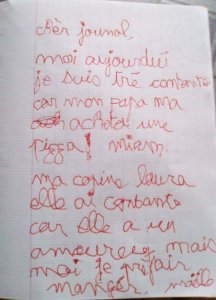 Cèr journal,
moi aujourdui
je suis tré contante
car mon papa ma
acheter une
pizza! miam.
ma copine laura
elle ai contante
car elle a un
amoureux mais
moi je préfair
manger. maëlle